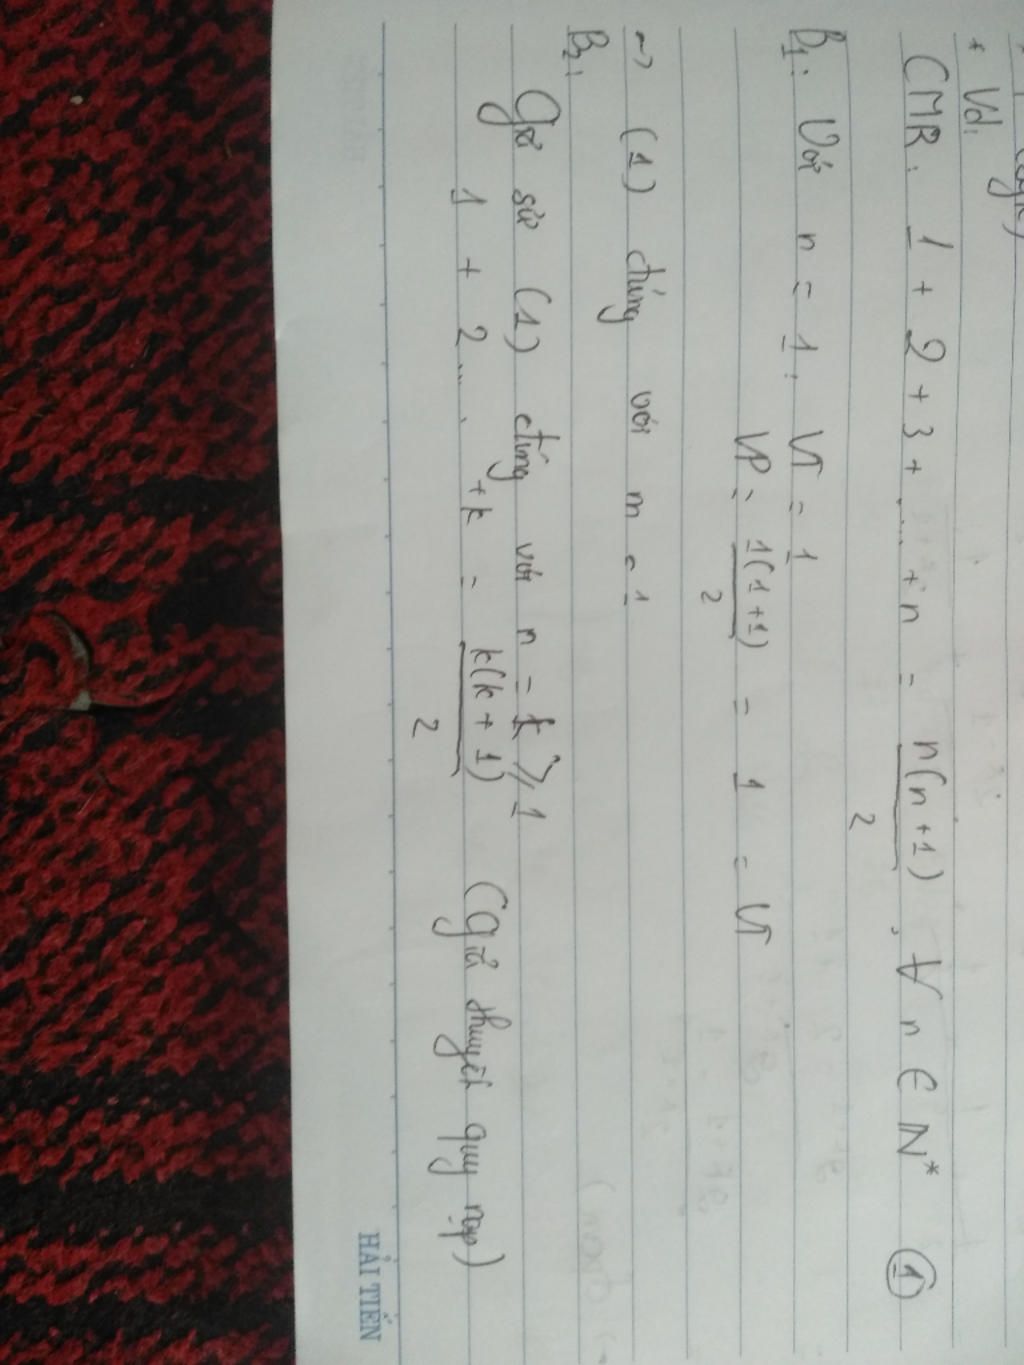 * Vd:
CMR: 1 + 2 + 3 + .... + n = n(n+1)/2, ∀ n ∈ N* (1)
B1: Với n = 1: VT = 1
VP = 1(1+1)/2 = 1 = VT
~> (1) đúng với n = 1
B2:
Giả sử (1) đúng với n = k ⩾ 1
1 + 2 .... + k = k(k+1)/2 (Giả thuyết quy nạp)
HẢI TIẾN